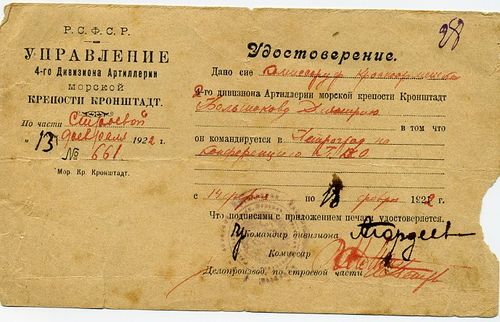 Р. С. Ф. С. Р.
УПРАВЛЕНИЕ
4-го Дивизиона Артиллерии
МОРСКОЙ
КРЕПОСТИ КРОНШТАДТ.
По части Строевой
" 13 " февраля 1922 г.
№ 661.
Мор. Кр. Кронштадт.
28
Удостоверение.
Дано сие
4-го дивизиона Артиллерии морской крепости Кронштадт
Большакову Дмитрию в том что
он командируется в Петроград на
конференцию
с 14 по 18 февр 1922
Что подписями с приложением печати удостоверяется.
Командир дивизиона Агордеев
Комиссар
Делопроизвод. по строевой части